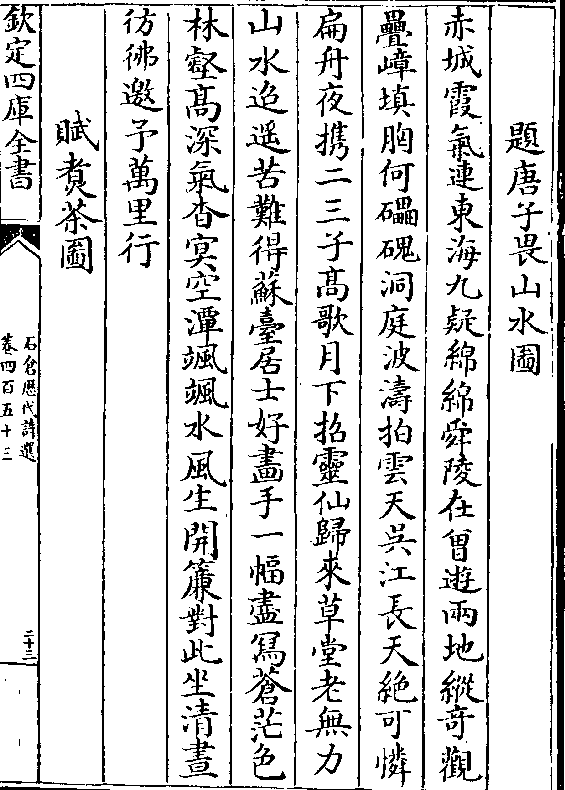 題唐子畏山水圖
赤城霞氣連東海九疑綿綿舜陵在曾遊兩地縱奇觀
疊嶂填胸何礧磈洞庭波濤拍雲天吳江長天絶可憐
扁舟夜携二三子髙歌月下招靈仙歸來草堂老無力
山水迢遥苦難得蘇臺居士好畫手一幅盡冩蒼茫色
林壑髙深氣杳冥空潭颯颯水風生開簾對此坐清晝
彷彿邀予萬里行
賦煑茶圖
欽定四庫全書
石倉歴代詩選
卷四百五十三
二十三